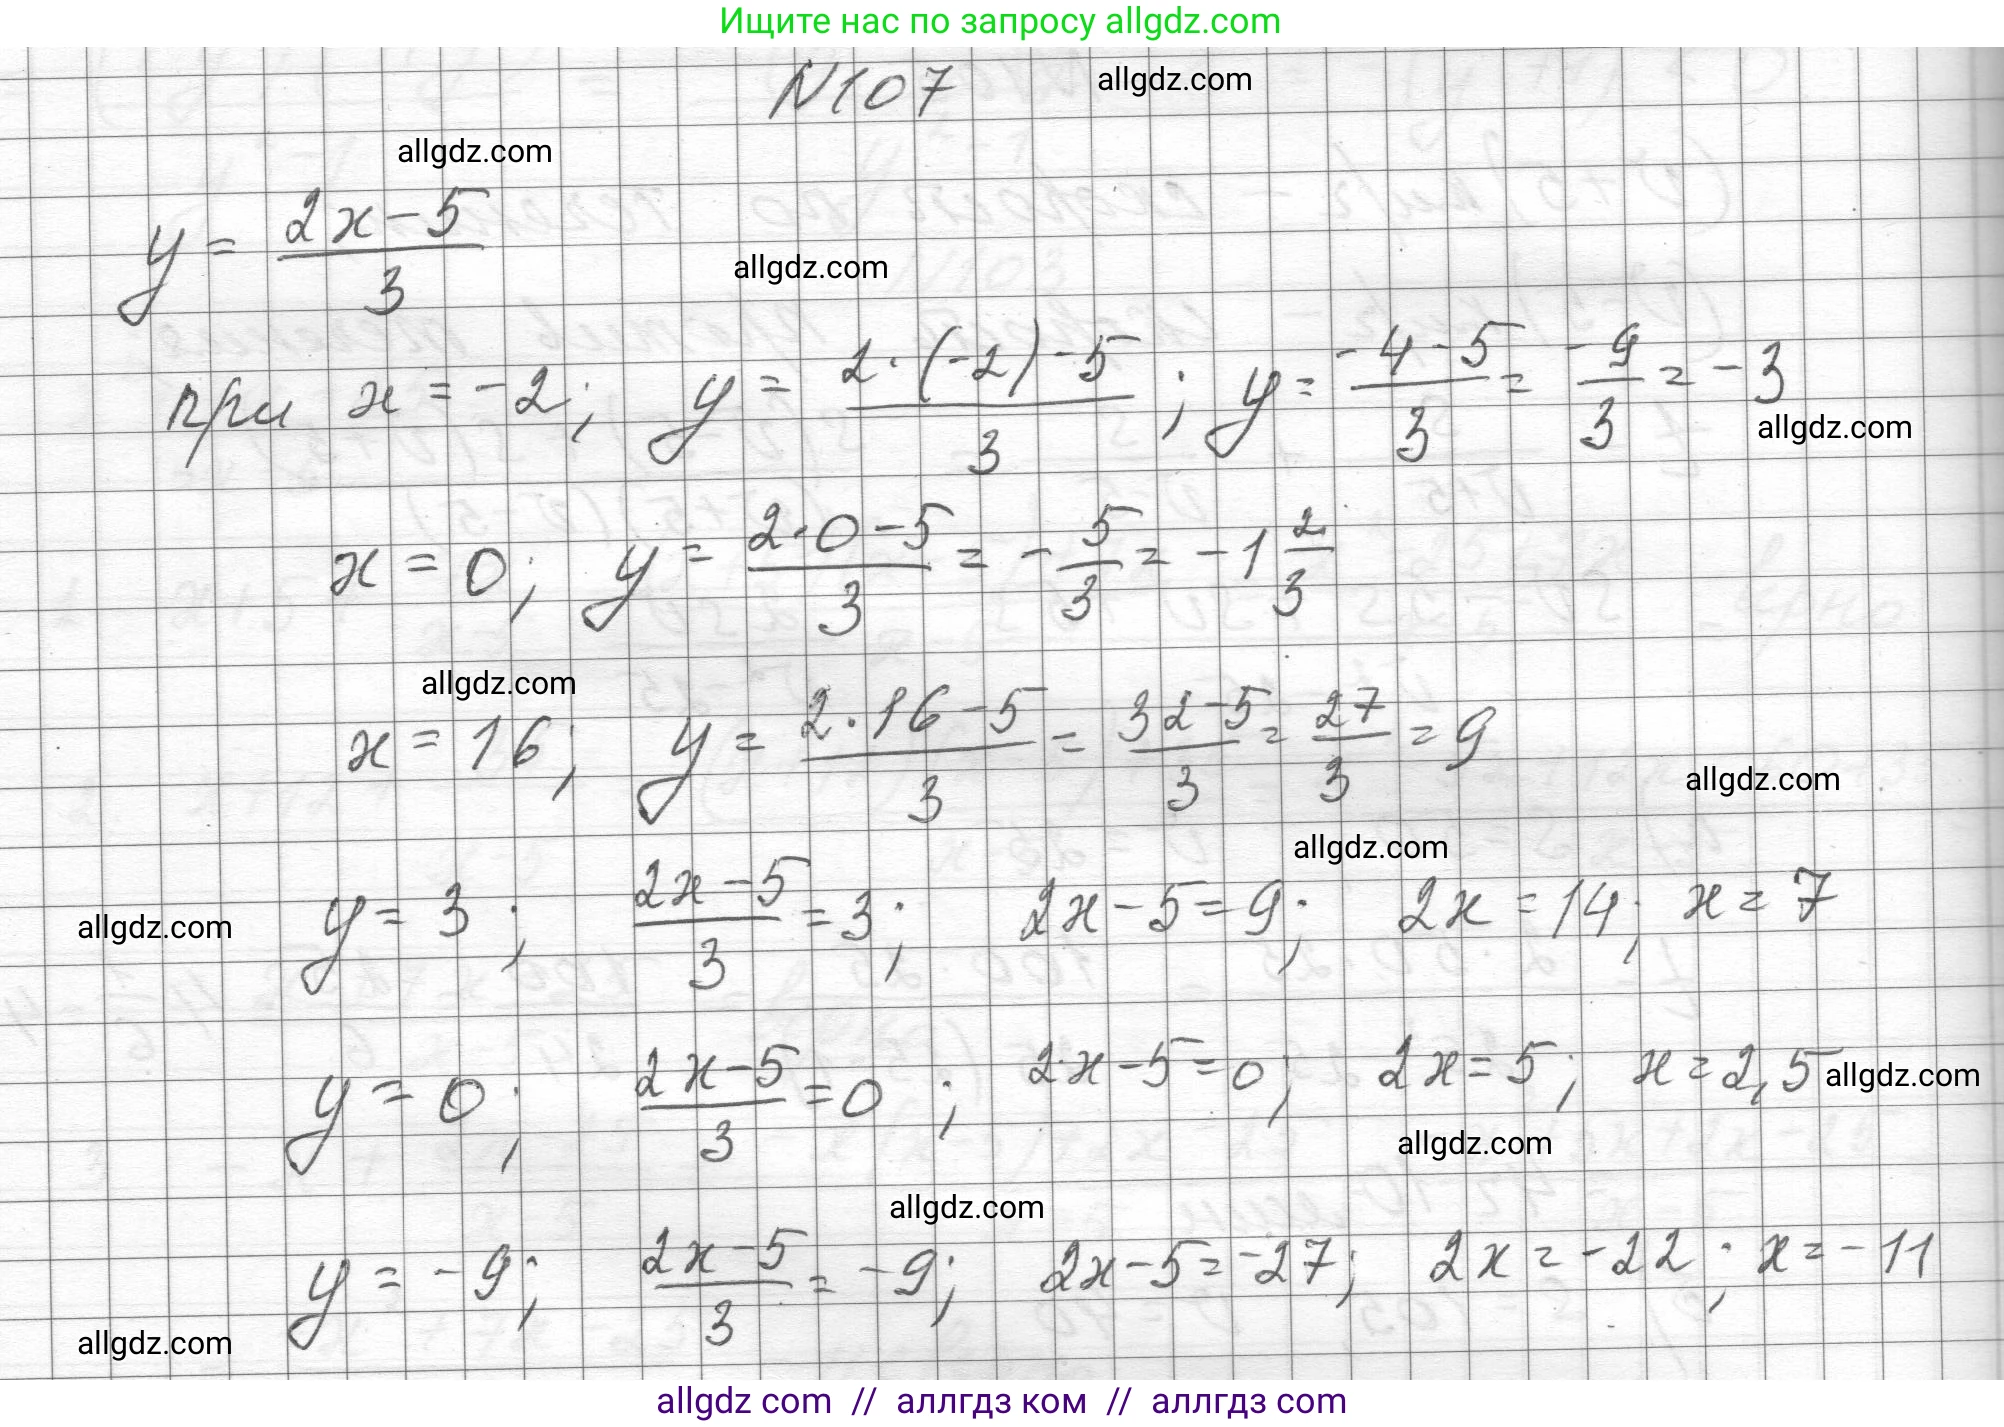 Ищите нас по запросу allgdz.com
N107 allgdz.com
allgdz.com
y = (2x-5)/3
allgdz.com
при x = -2; y = (2·(-2)-5)/3; y = (-4-5)/3 = -9/3 = -3
allgdz.com
x = 0; y = (2·0-5)/3 = -5/3 = -1 2/3
allgdz.com
x = 16; y = (2·16-5)/3 = (32-5)/3 = 27/3 = 9
allgdz.com
allgdz.com
y = 3; (2x-5)/3 = 3; 2x-5=9; 2x=14; x=7
allgdz.com
y = 0; (2x-5)/3 = 0; 2x-5=0; 2x=5; x=2,5
allgdz.com
allgdz.com
allgdz.com
y = -9; (2x-5)/3 = -9; 2x-5=-27; 2x=-22; x=-11
allgdz.com
allgdz com // аллгдз ком // аллгдз com